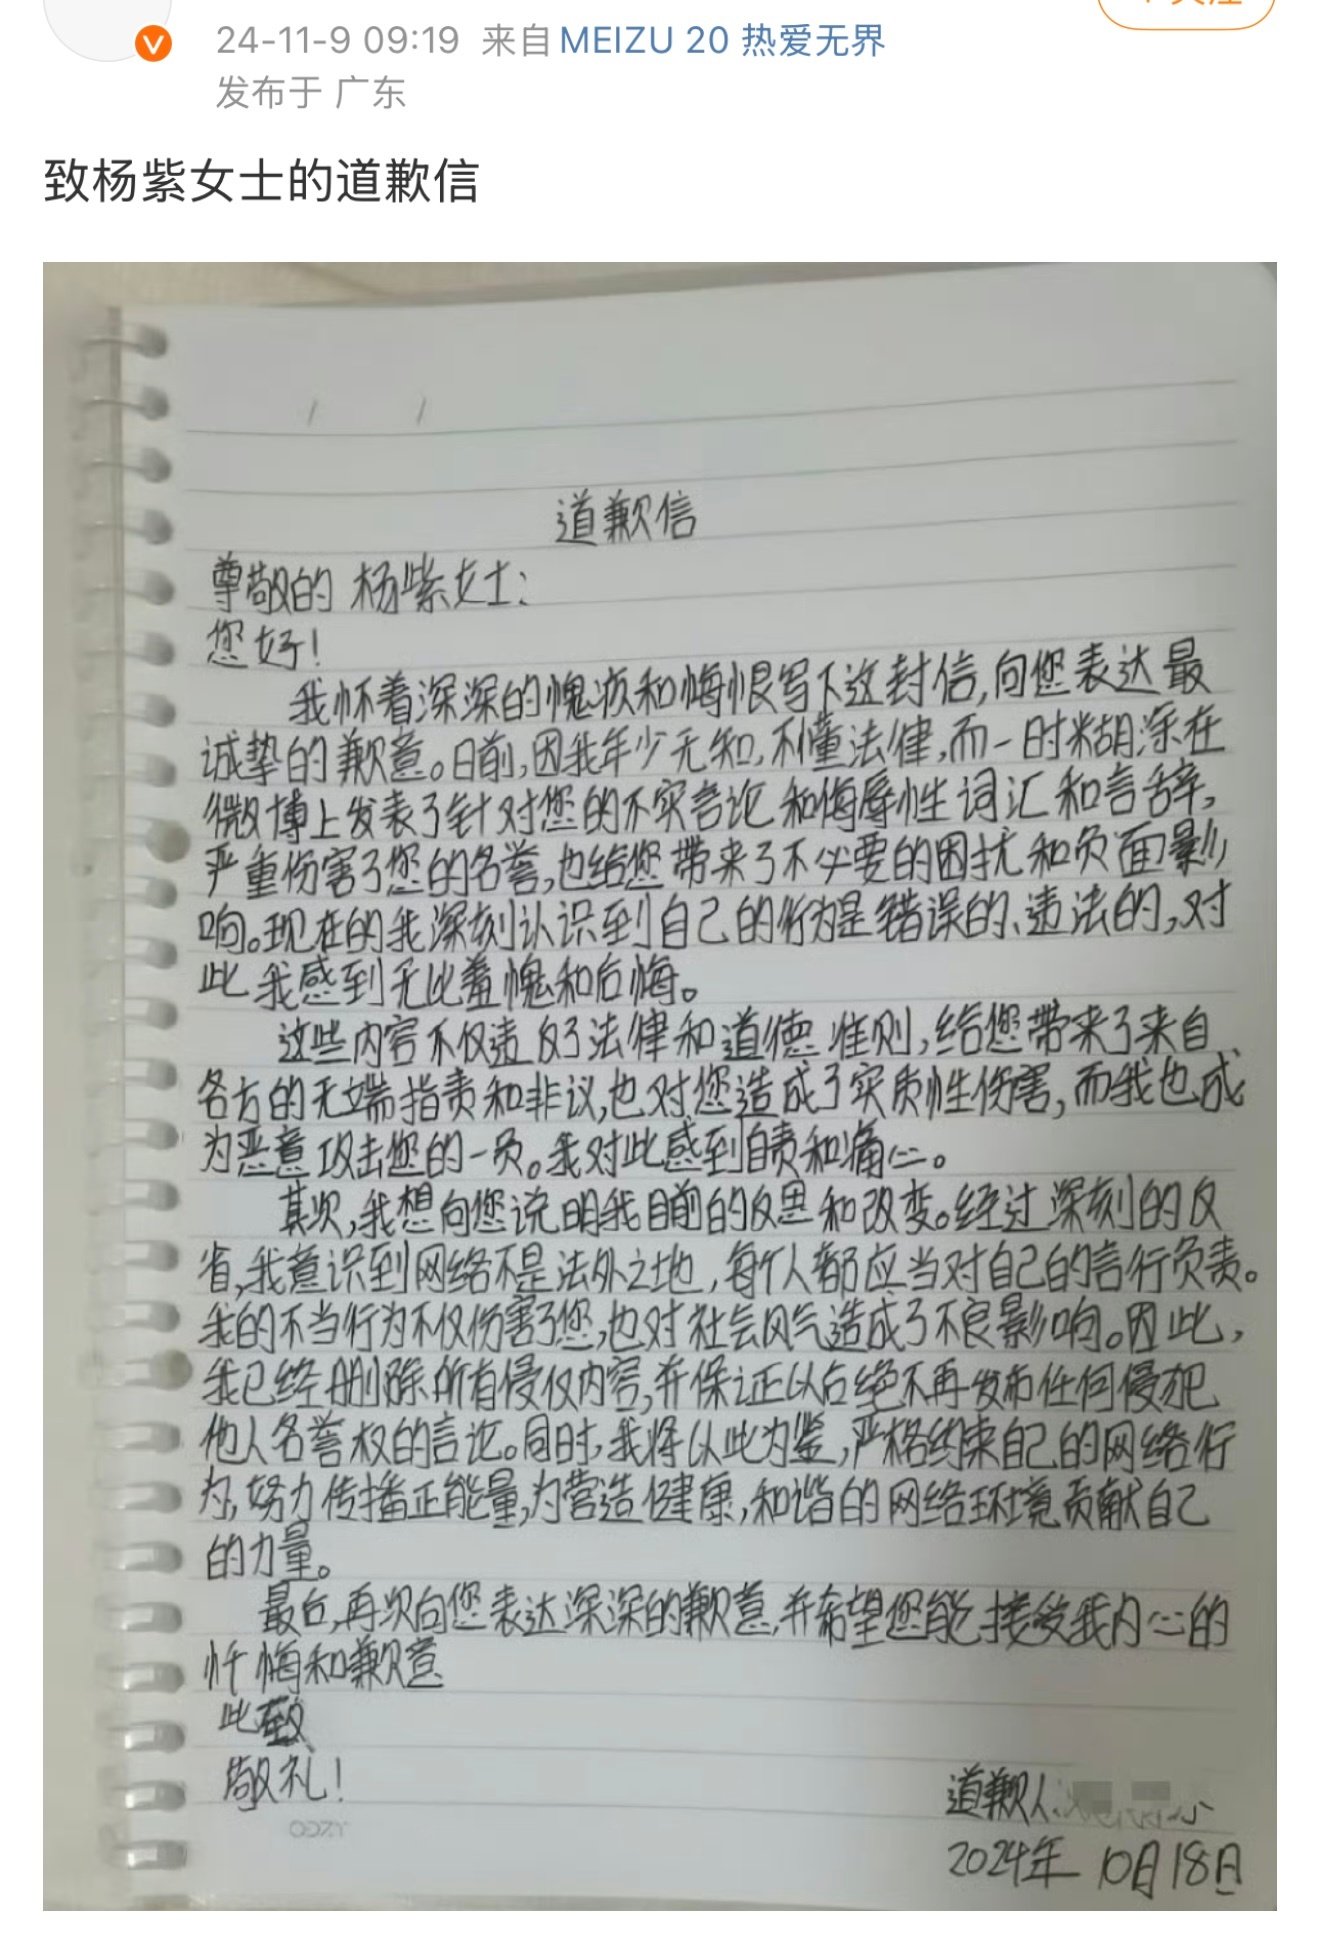 24-11-9 09:19 来自 MEIZU 20 热爱无界
发布于 广东
致杨紫女士的道歉信
道歉信
尊敬的 杨紫女士:
您好!
我怀着深深的愧疚和悔恨写下这封信,向您表达最
诚挚的歉意。日前,因我年少无知,不懂法律,而一时糊涂在
微博上发表了针对您的不实言论和侮辱性词汇和言辞,
严重伤害了您的名誉,也给您带来了不必要的困扰和负面影
响。现在的我深刻认识到自己的行为是错误的、违法的,对
此我感到无比羞愧和后悔。
这些内容不仅违反了法律和道德准则,给您带来了来自
各方的无端指责和非议,也对您造成了实质性伤害,而我也成
为恶意攻击您的一员。我对此感到自责和痛心。
其次,我想向您说明我目前的反思和改变。经过深刻的反
省,我意识到网络不是法外之地,每个人都应当对自己的言行负责。
我的不当行为不仅伤害了您,也对社会风气造成了不良影响。因此,
我已经删除所有侵权内容,并保证以后绝不再发布任何侵犯
他人名誉权的言论。同时,我将以此为鉴,严格约束自己的网络行
为,努力传播正能量,为营造健康,和谐的网络环境贡献自己
的力量。
最后,再次向您表达深深的歉意,并希望您能接受我内心的
忏悔和歉意
此致
敬礼!
道歉人:
2024年 10月18日